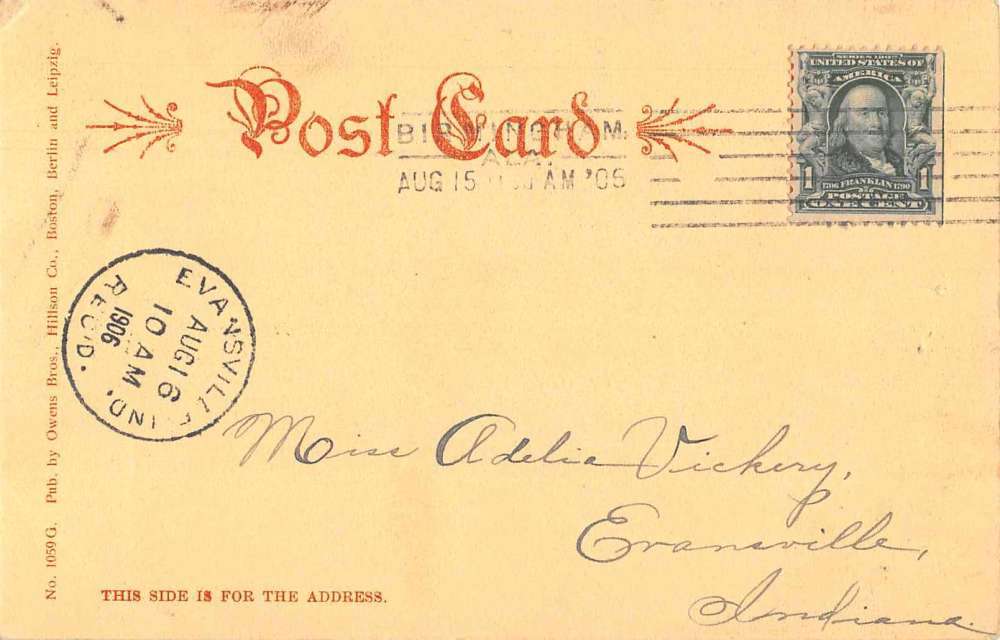 Post Card
BIRMINGHAM
ALA.
AUG 15 AM '06
SERIES 1902
UNITED STATES OF
AMERICA
1 1706 FRANKLIN 1790 1
POSTAGE
ONE CENT
No. 1059 G. Pub. by Owens Bros., Hillson Co., Boston, Berlin and Leipzig.
EVANSVILLE IND.
AUG 16
10 AM
1906
REC'D.
Miss Adelia Vickery,
Evansville,
Indiana.
THIS SIDE IS FOR THE ADDRESS.